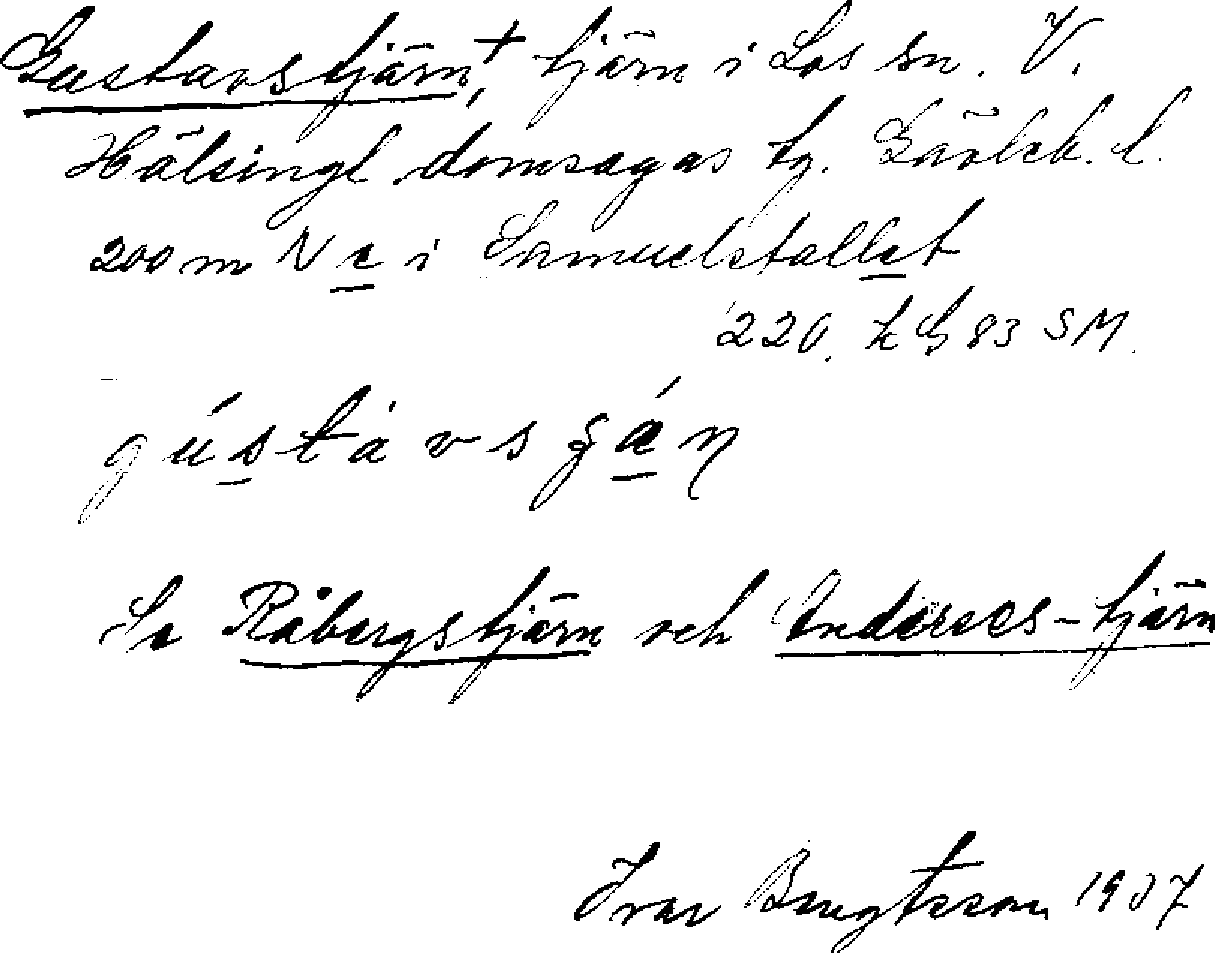 Gustavstjärn+, tjärn i Los sn. V.
Hälsingl. domsagas tg. Gävleb. l.
200 m N e i Samuelstallet
220. k G 83 SM.
gústàvs
Se Råbergstjärn och Anderses-tjärn
Ivar Bengtsson 1937